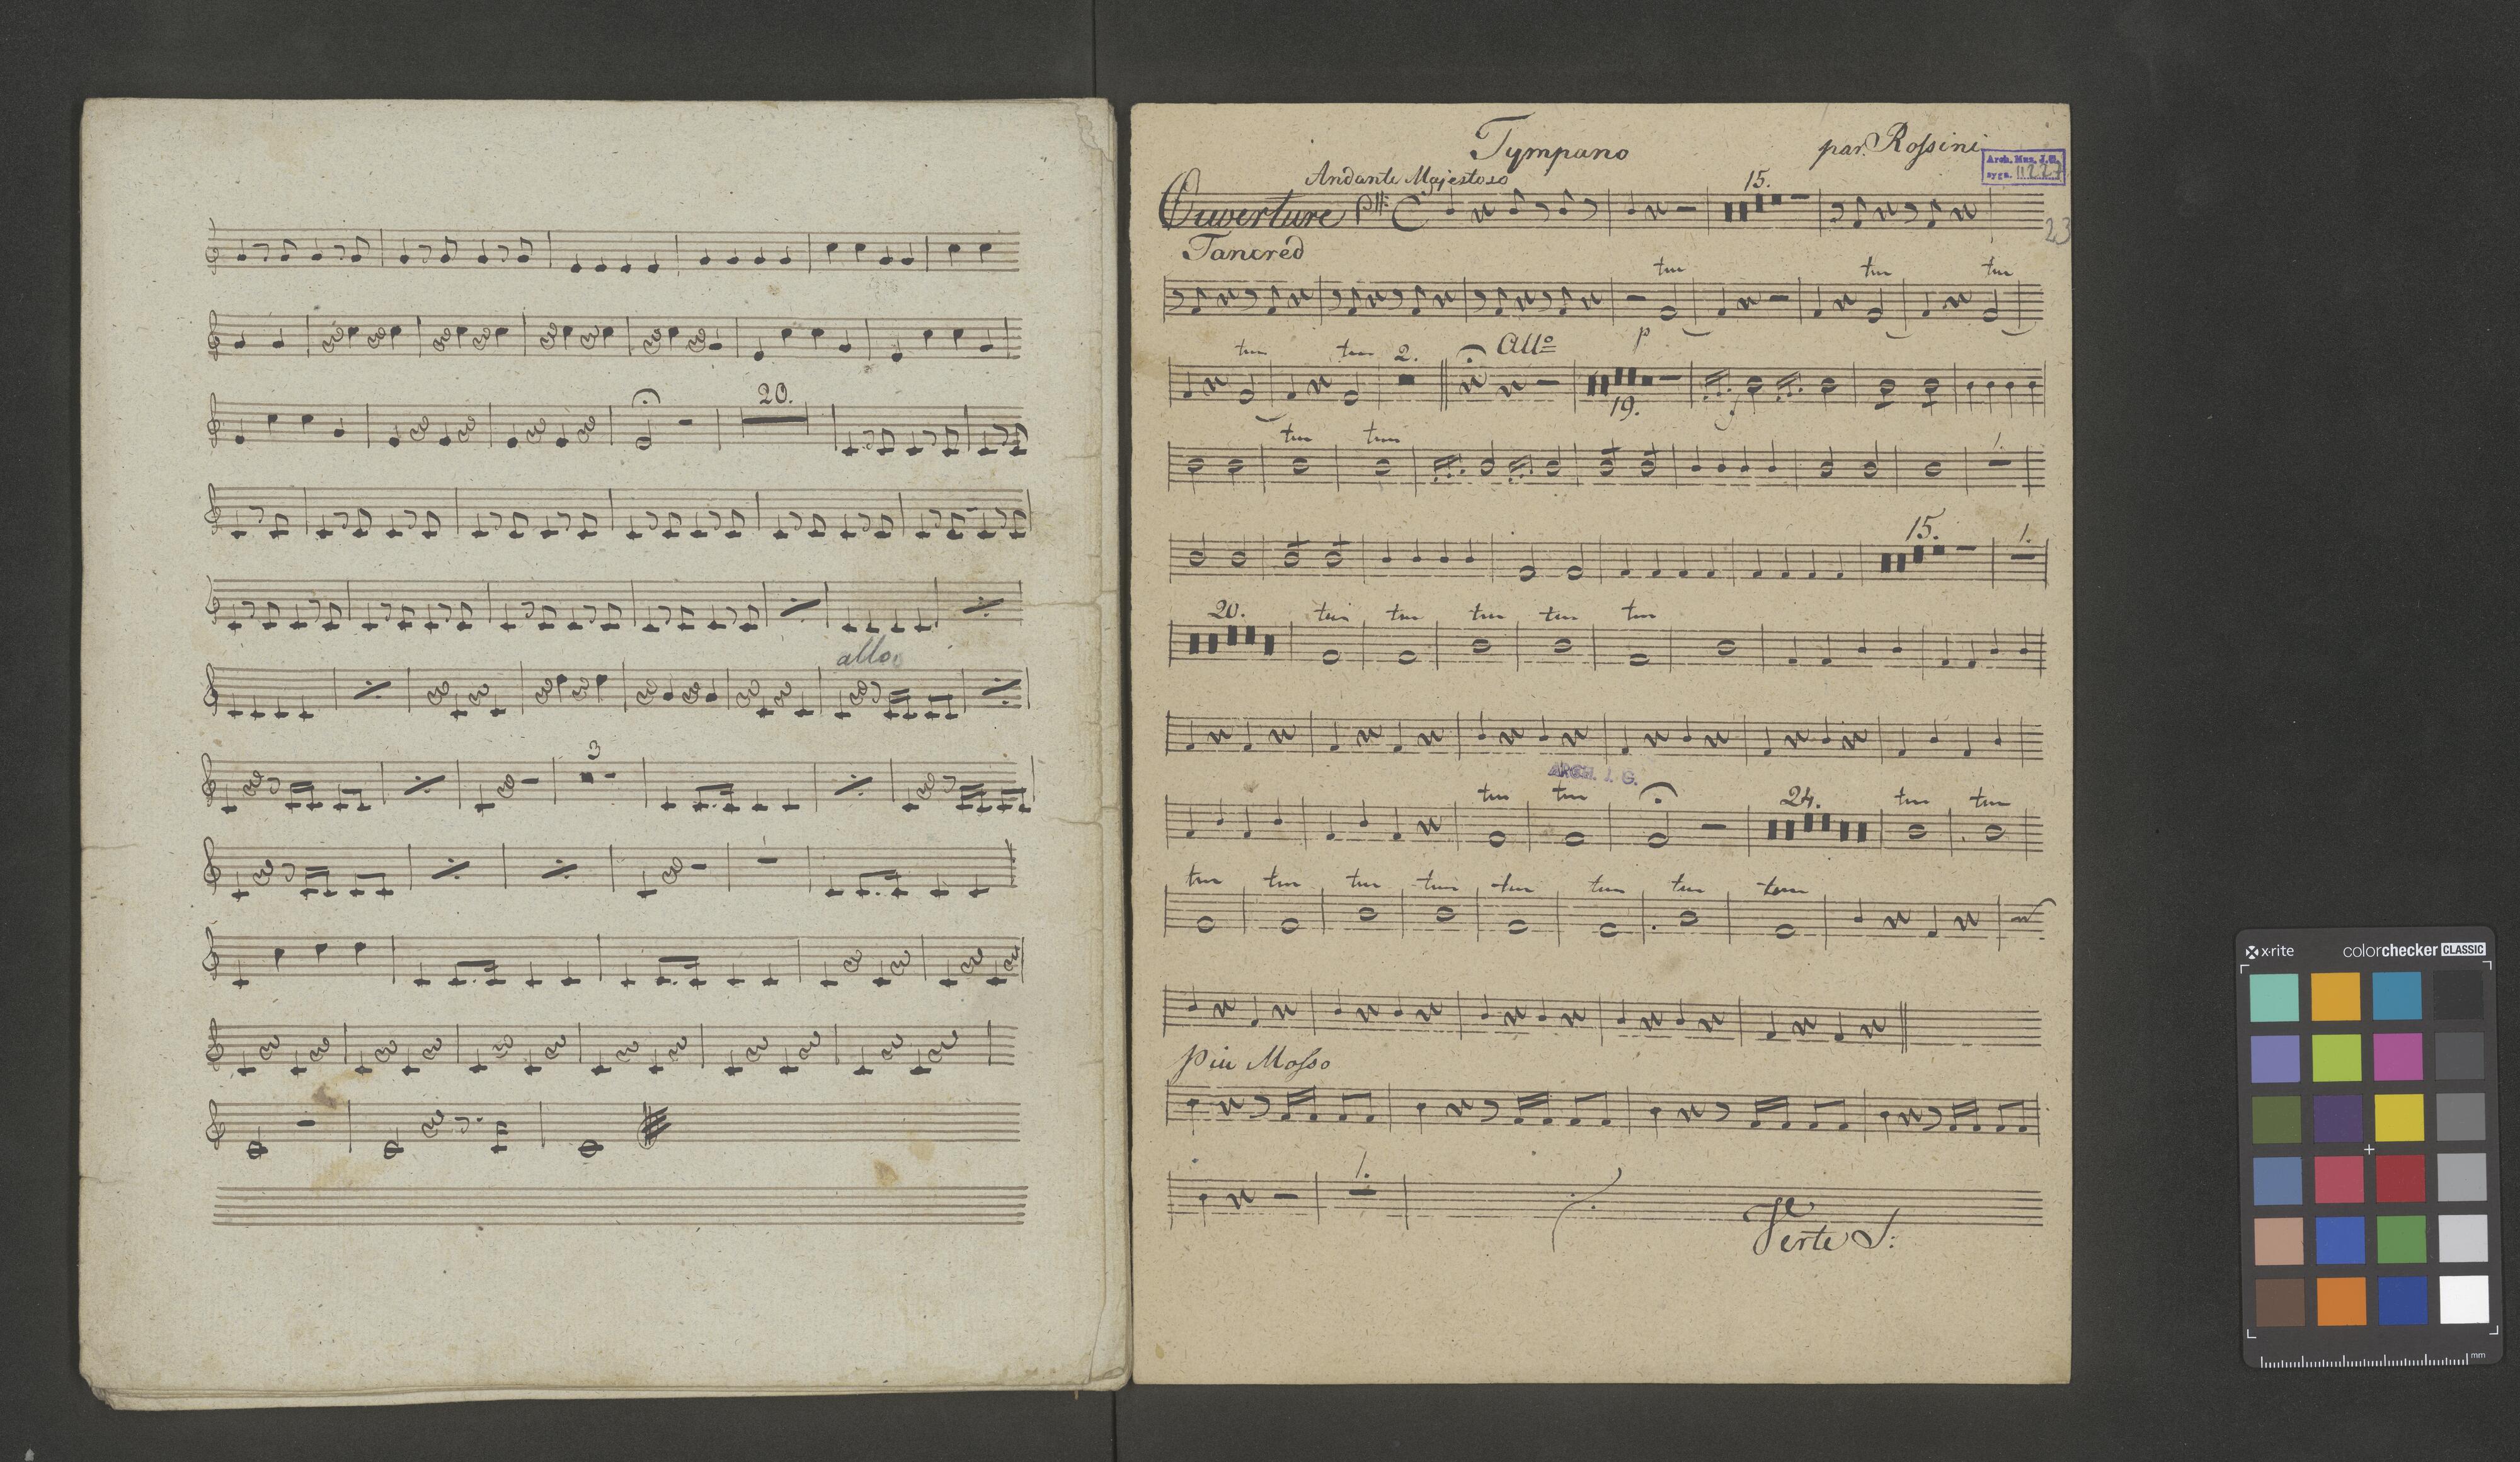 20.
allo
3
Tympano
par Rossini
Arch. Muz. J. G.
sygn. II 227
Andante Majestoso
15.
Ouverture
23
Tancréd
tm tm tm
p
tm tm 2. Allo
19. f
tm tm 1.
15. 1.
20. tm tm tm tm tm
ARCH. J. G.
tm tm 24. tm tm
tm tm tm tm tm tm tm tm
Piu Mosso
1.
Verte S:
x-rite colorchecker CLASSIC
mm